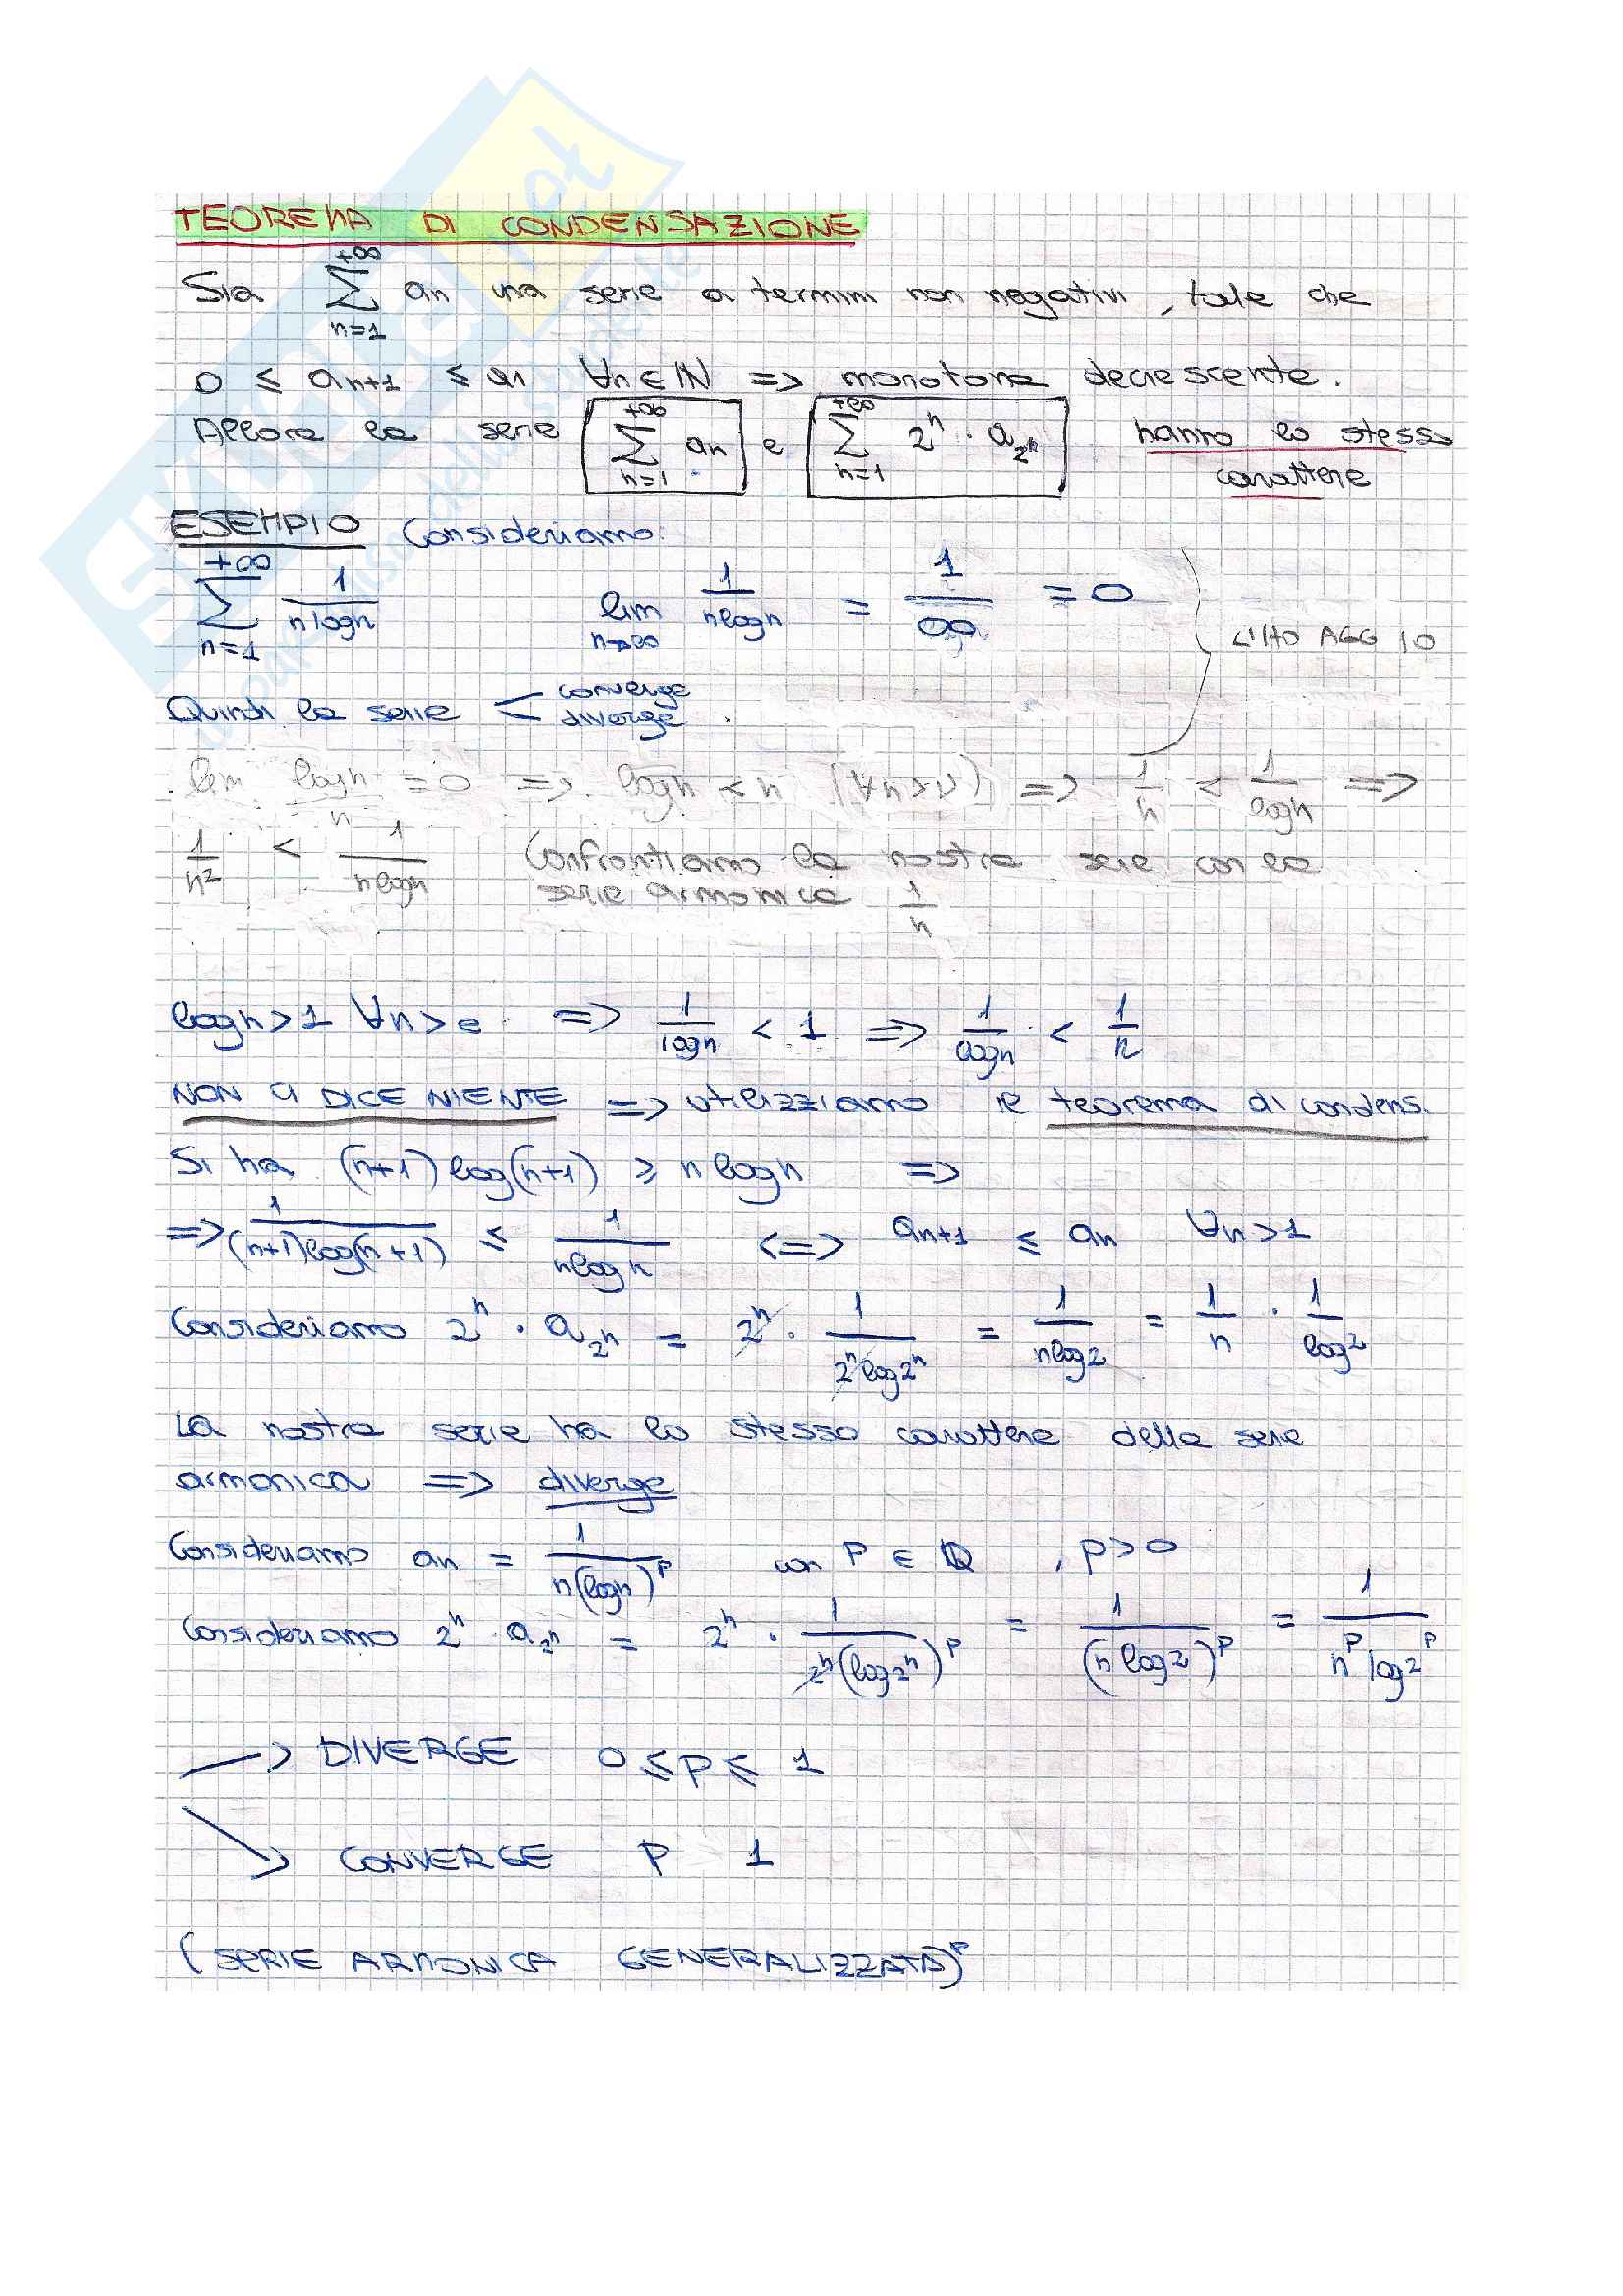 TEOREMA DI CONDENSAZIONE
Sia ∑_{n=1}^{+∞} an una serie a termini non negativi, tale che
0 ≤ a_{n+1} ≤ an ∀n∈ℕ => monotona decrescente.
Allora la serie ∑_{n=1}^{+∞} an e ∑_{n=1}^{+∞} 2^n · a_{2^n} hanno lo stesso
carattere
ESEMPIO Consideriamo:
∑_{n=1}^{+∞} 1/(n log n) lim_{n→∞} 1/(n log n) = 1/∞ = 0
Quindi la serie < converge diverge .
lim log n / n = 0 => log n < n (∀n>ν) => 1/n < 1/log n =>
1/n² < 1/(n log n) Confrontiamo la nostra serie con la
serie armonica 1/n
log n > 1 ∀n > e => 1/log n < 1 => 1/log n < 1/n
NON CI DICE NIENTE => utilizziamo il teorema di condens.
Si ha (n+1) log(n+1) ≥ n log n =>
=> 1/((n+1) log(n+1)) ≤ 1/(n log n) <=> a_{n+1} ≤ an ∀n>1
Consideriamo 2^n · a_{2^n} = 2^n · 1/(2^n log 2^n) = 1/(n log 2) = 1/n · 1/log 2
La nostra serie ha lo stesso carattere della serie
armonica => diverge
Consideriamo an = 1/(n (log n)^p) con p ∈ ℚ , p > 0
Consideriamo 2^n · a_{2^n} = 2^n · 1/(2^n (log 2^n)^p) = 1/(n log 2)^p = 1/(n^p log 2^p)
→ DIVERGE 0 ≤ p ≤ 1
↘ CONVERGE P 1
(SERIE ARMONICA GENERALIZZATA)^p